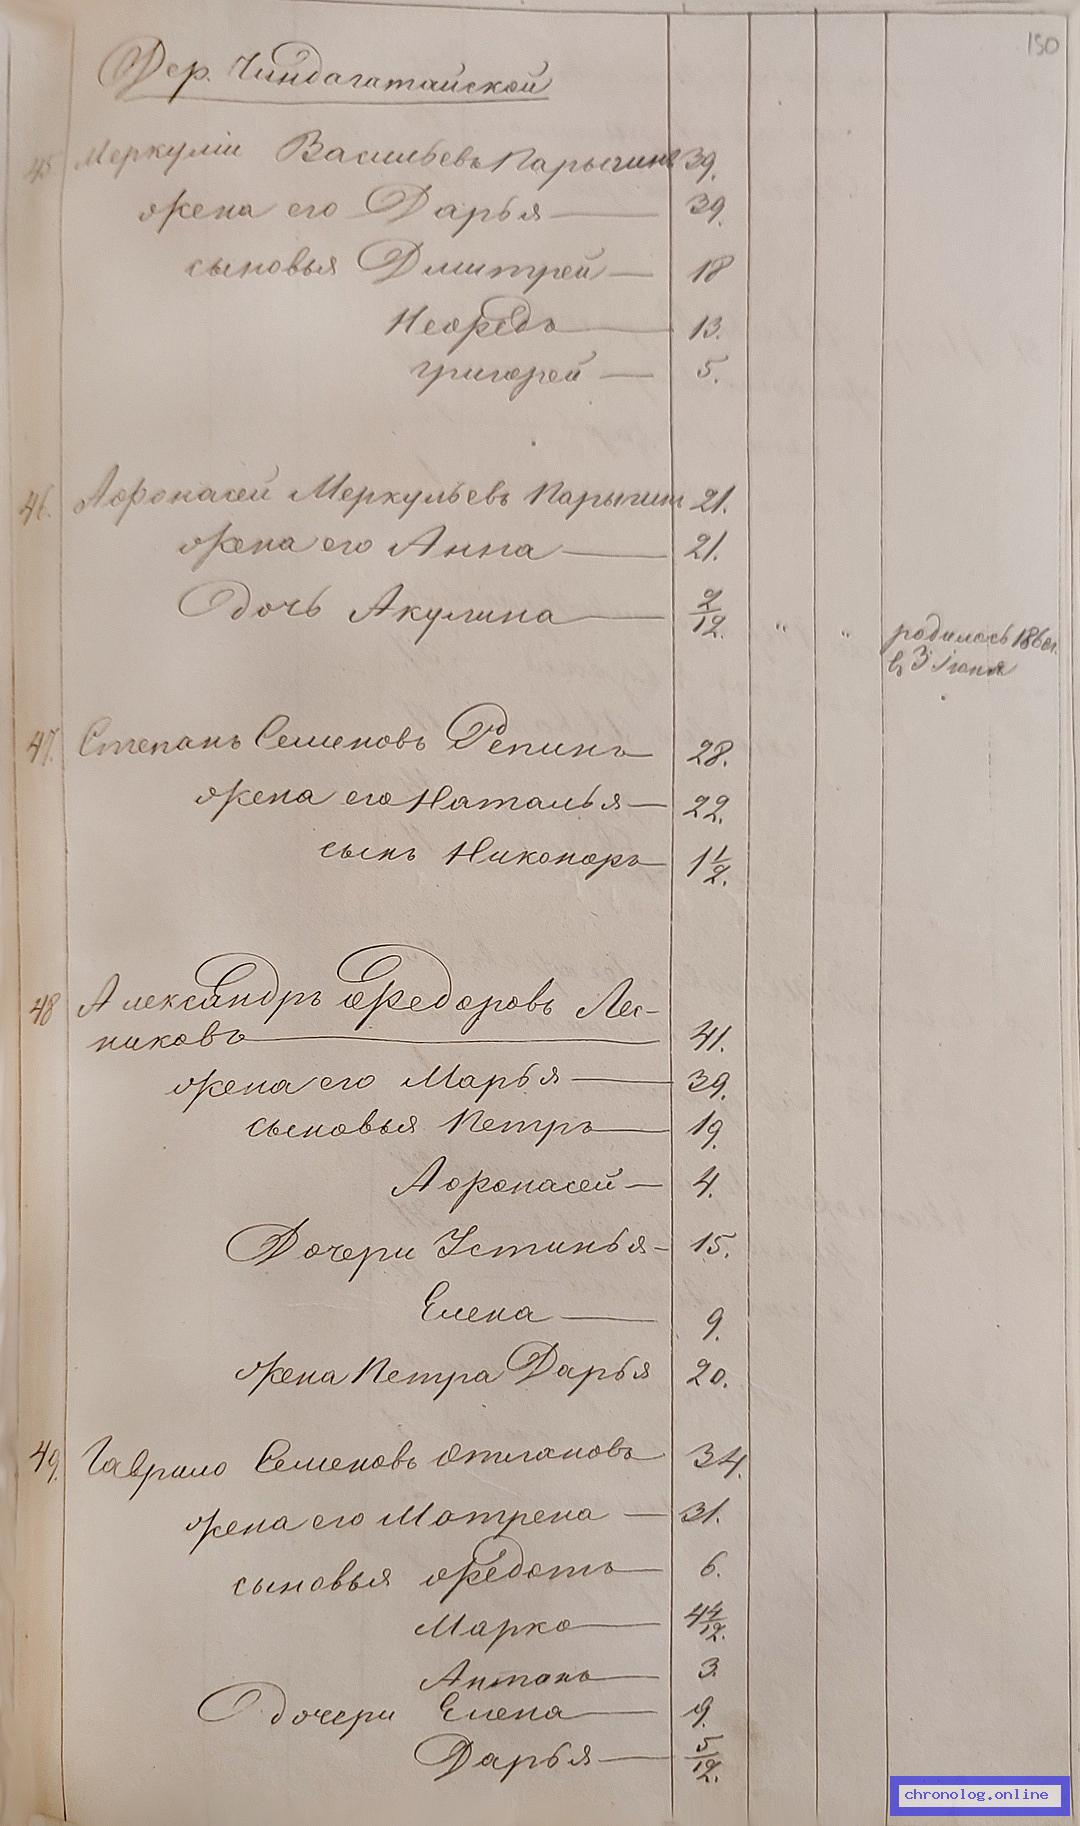 150
Дер. Чиндагатайской
45 Меркулiи Васильевъ Парыгинъ 39.
жена его Дарья 39.
сыновья Дмитрей 18
Неѳедъ 13.
григорей 5.
46. Афонасей Меркульевъ Парыгин 21.
жена его Анна 21.
дочь Акулина 2/12. " " родилась 186 г.
въ 3 Iюня
47. Степанъ Семеновъ Репинъ 28.
жена его Наталья 22.
сынъ Никоноръ 1 1/2.
48 Александръ Федоровъ Лес-
никовъ 41.
жена его Марья 39.
сыновья Петръ 19.
Афонасей 4.
Дочери Устинья 15.
Елена 9.
жена Петра Дарья 20.
49. Гаврило Семеновъ 34.
жена его Матрена 31.
сыновья Федотъ 6.
Марко 4 4/12.
Антонъ 3.
дочери Елена 9.
Дарья 5/12.
chronolog.online